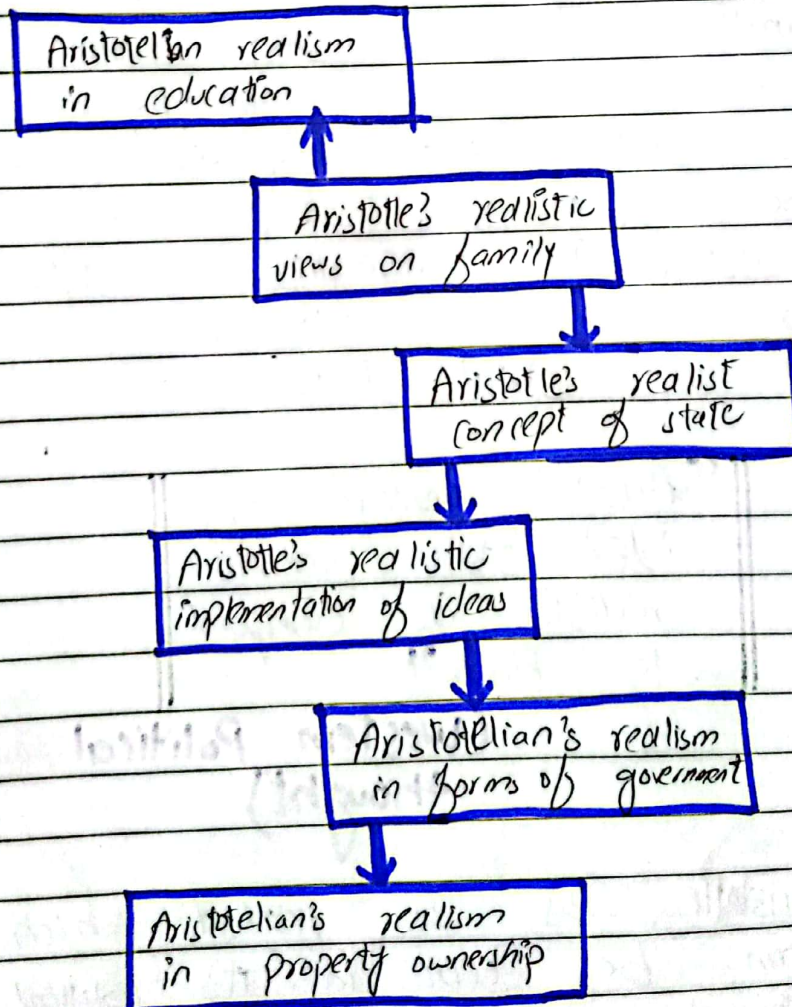 Aristotelian realism
in education
Aristotle's realistic
views on family
Aristotle's realist
concept of state
Aristotle's realistic
implementation of ideas
Aristotelian's realism
in forms of government
Political
Aristotelian's realism
in property ownership